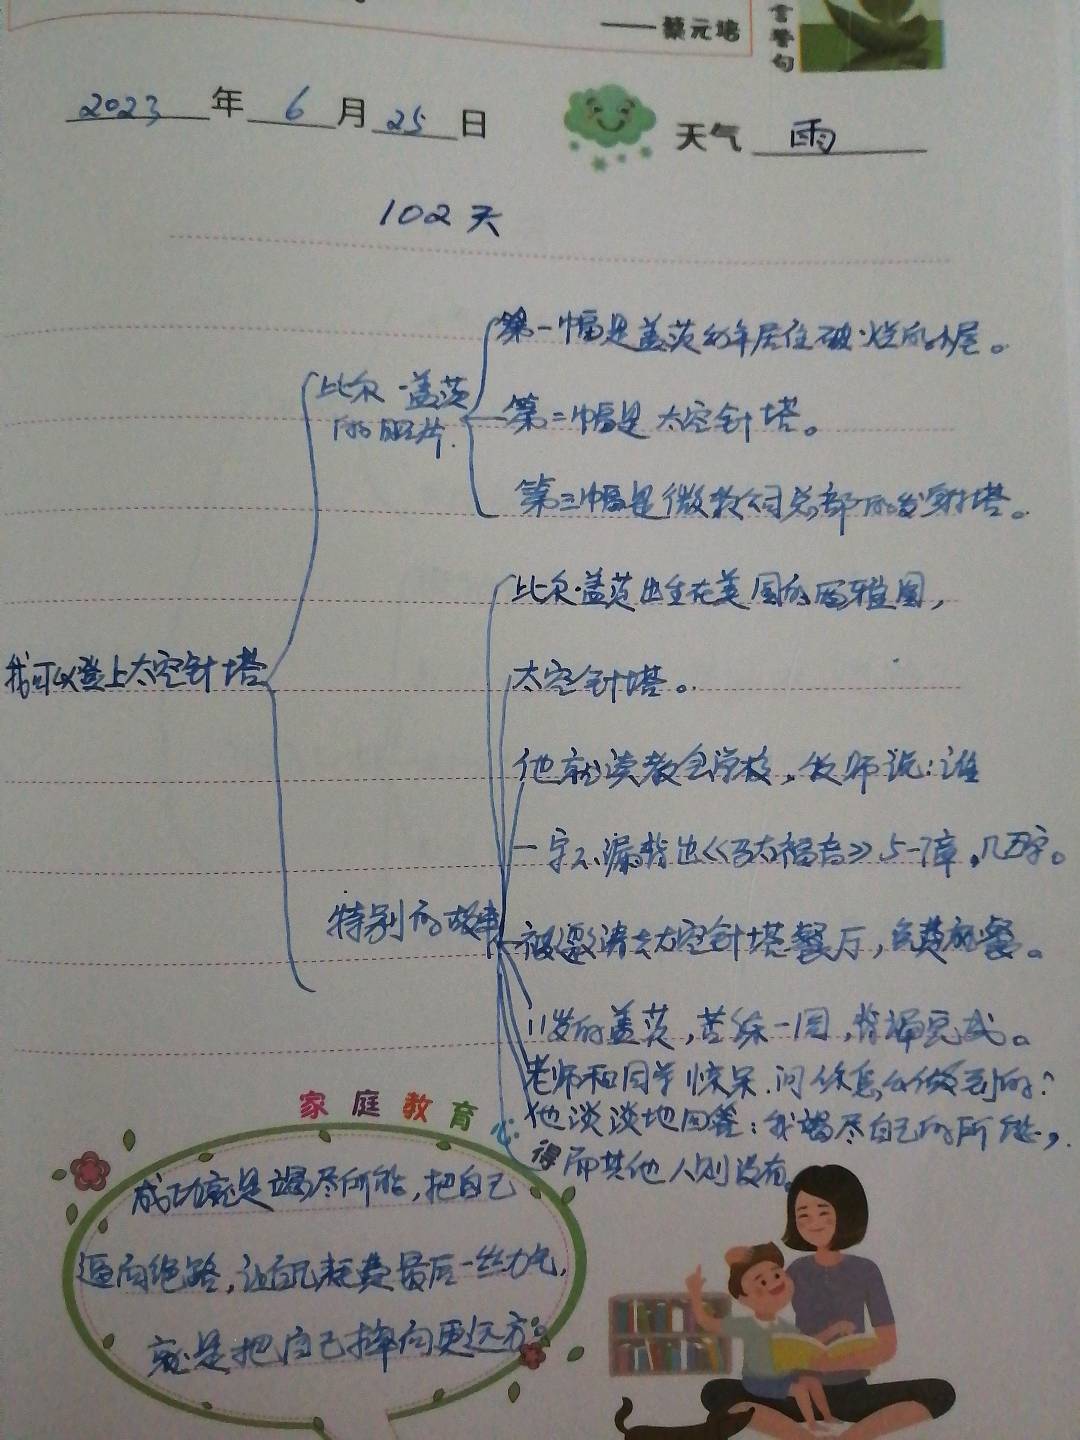 ——蔡元培
言警句
2023年6月25日
天气 雨
102天
第一幅是盖茨幼年居住破烂的小屋。
比尔·盖茨
的照片.
第二幅是太空针塔。
第三幅是微软公司总部的发射塔。
比尔·盖茨出生在美国的西雅图,
我可以登上太空针塔
太空针塔。
他就读教会学校,牧师说:谁
一字不漏背出《马太福音》5-7章,几万字。
特别的故事
被邀请去太空针塔餐厅,免费就餐。
11岁的盖茨,苦练一周,背诵完成。
老师和同学惊呆.问你怎么做到的?
他淡淡地回答:我竭尽自己的所能,
而其他人则没有。
家庭教育心得
成功就是竭尽所能,把自己
逼向绝路,让自己耗费最后一丝力气,
就是把自己摔向更远方。